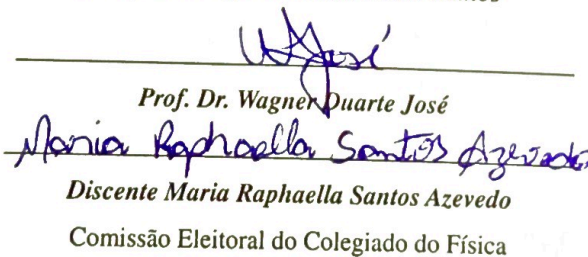 WDJosé
Prof. Dr. Wagner Duarte José
Maria Raphaella Santos Azevedo
Discente Maria Raphaella Santos Azevedo
Comissão Eleitoral do Colegiado do Física